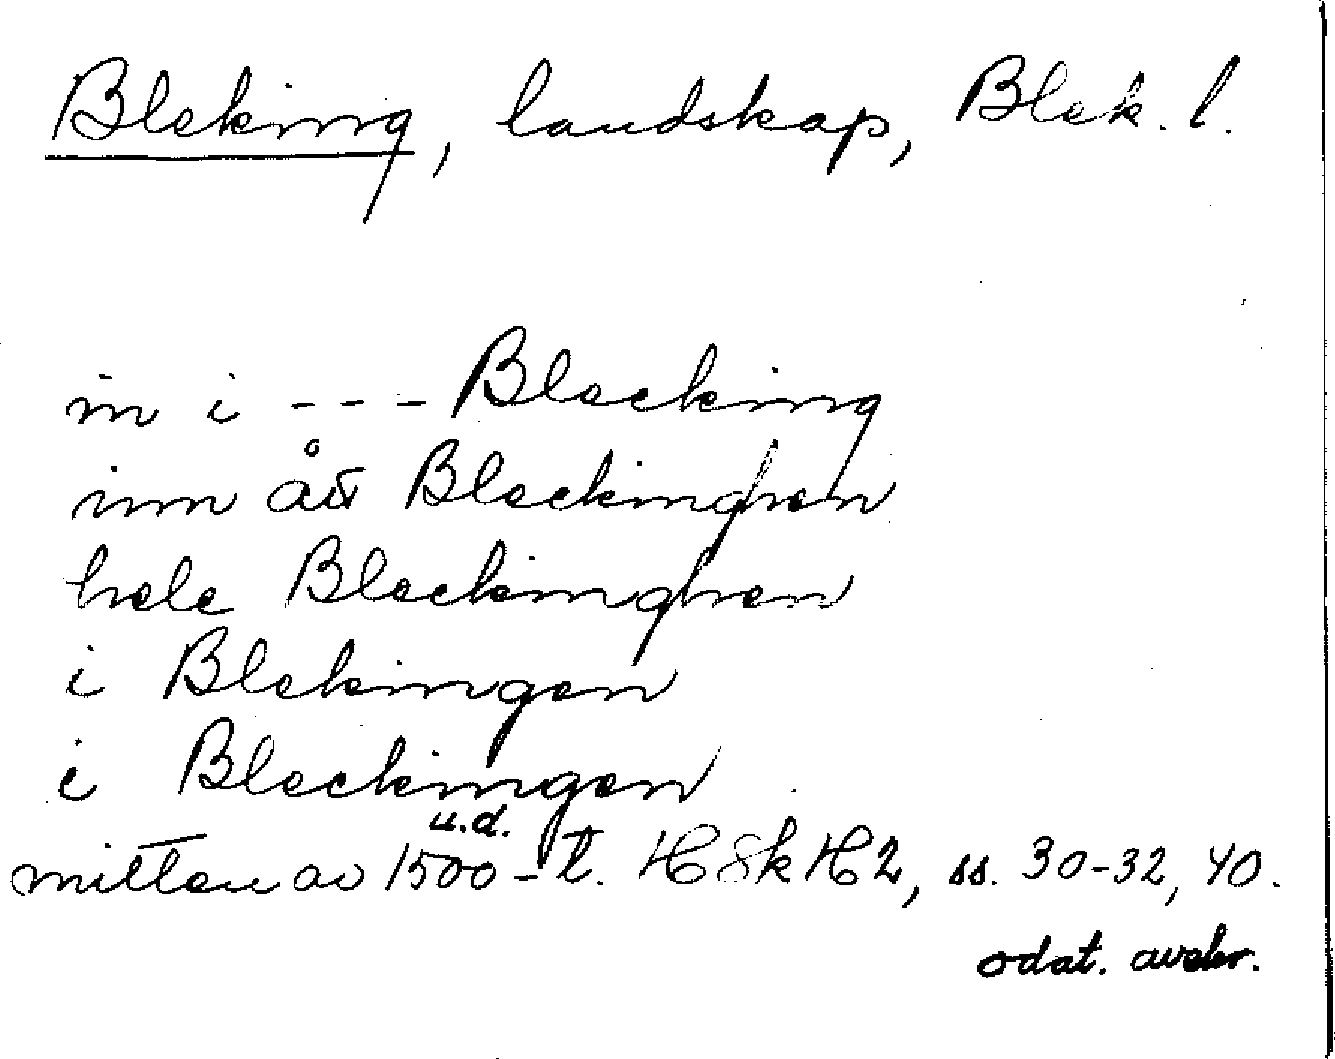 Bleking, landskap, Blek. l.
in i --- Blecking
inn ått Bleckinghen
hele Bleckinghen
i Blekingen
i Bleckingen
u.d.
mitten av 1500-t. HSkH2, ss. 30-32, 40.
odat. avskr.